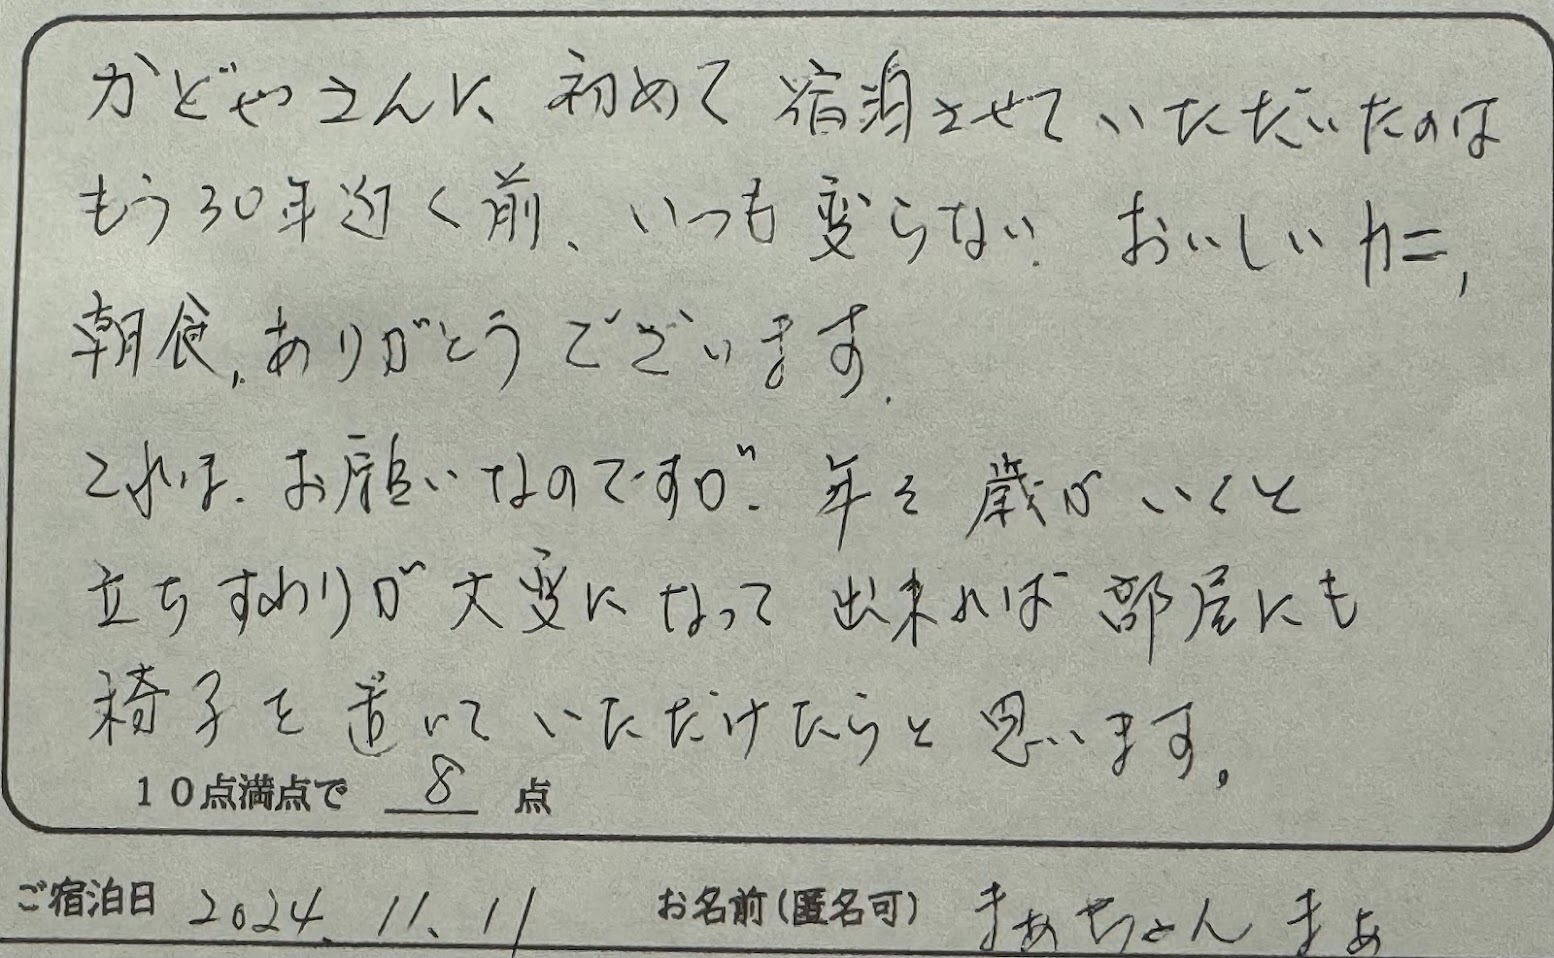 かどやさんに、初めて宿泊させていただいたのは
もう30年近く前、いつも変らない、おいしいカニ、
朝食、ありがとうございます。
これは、お願いなのですが、年を歳がいくと
立ちすわりが大変になって出来れば部屋にも
椅子を置いていただけたらと思います。
10点満点で 8 点
ご宿泊日 2024.11.11 お名前(匿名可) まぁちゃん まあ